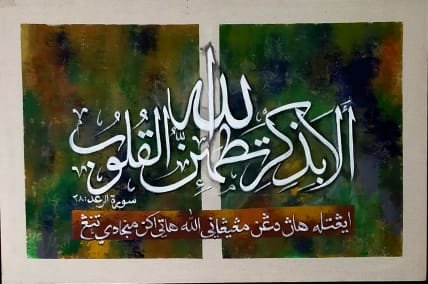 ألا بذكر الله تطمئن القلوب
سورة الرعد: ٢٨
ايڠتله هاڽ دڠن مڠيڠاتي الله هاتي اكن منجادي تنڠ